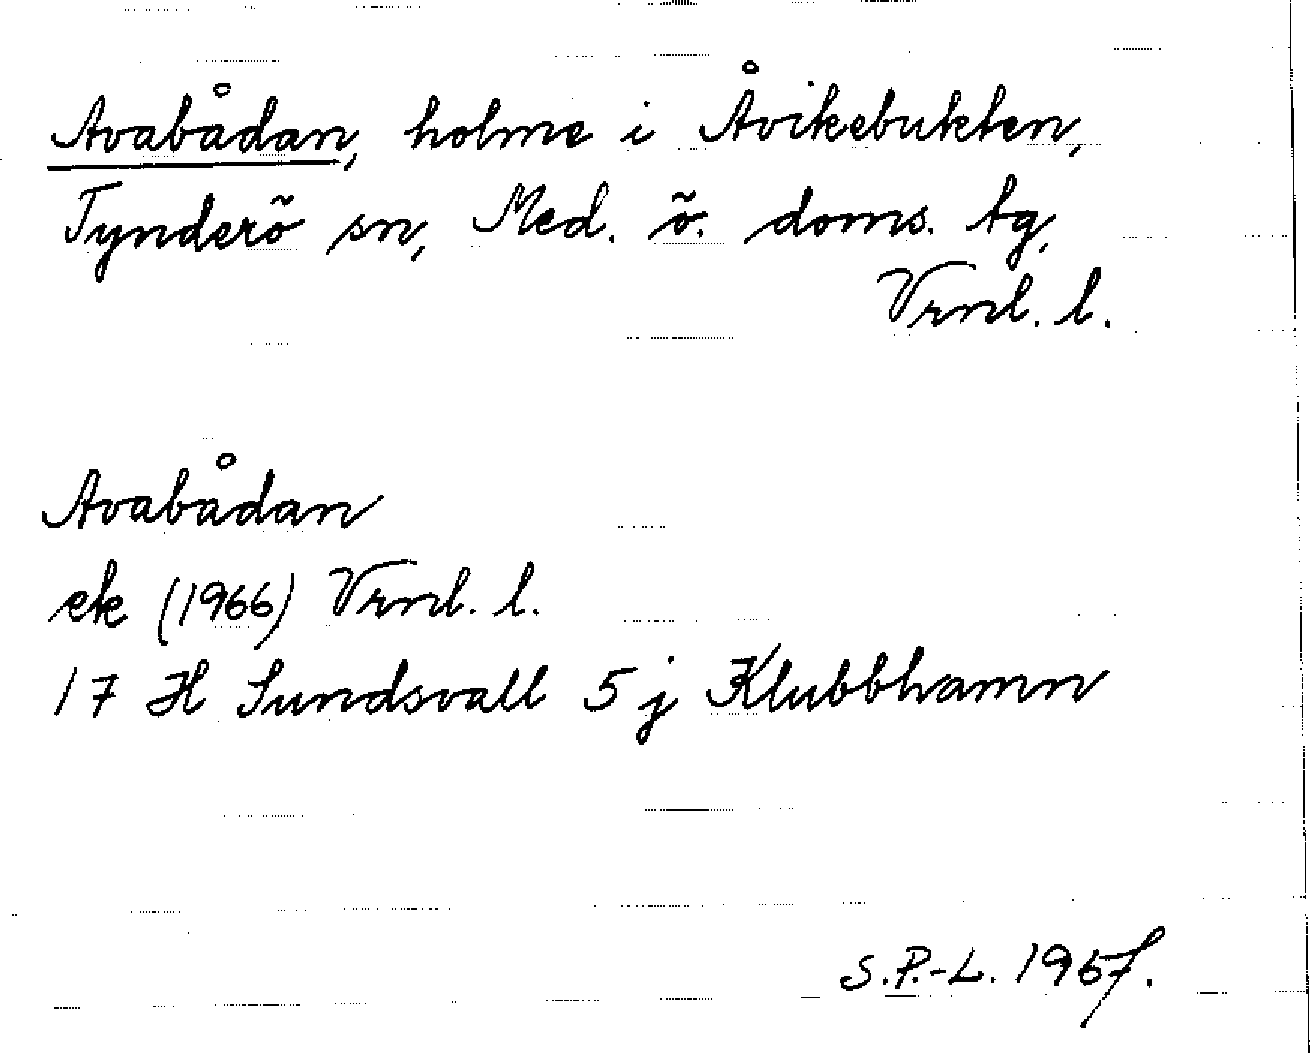 Avabådan, holme i Åvikebukten,
Tynderö sn, Med. ö. doms. tg,
Vrnl. l.
Avabådan
ek (1966) Vrnl. l.
17 H Sundsvall 5 j Klubbhamn
S.P.-L. 1967.